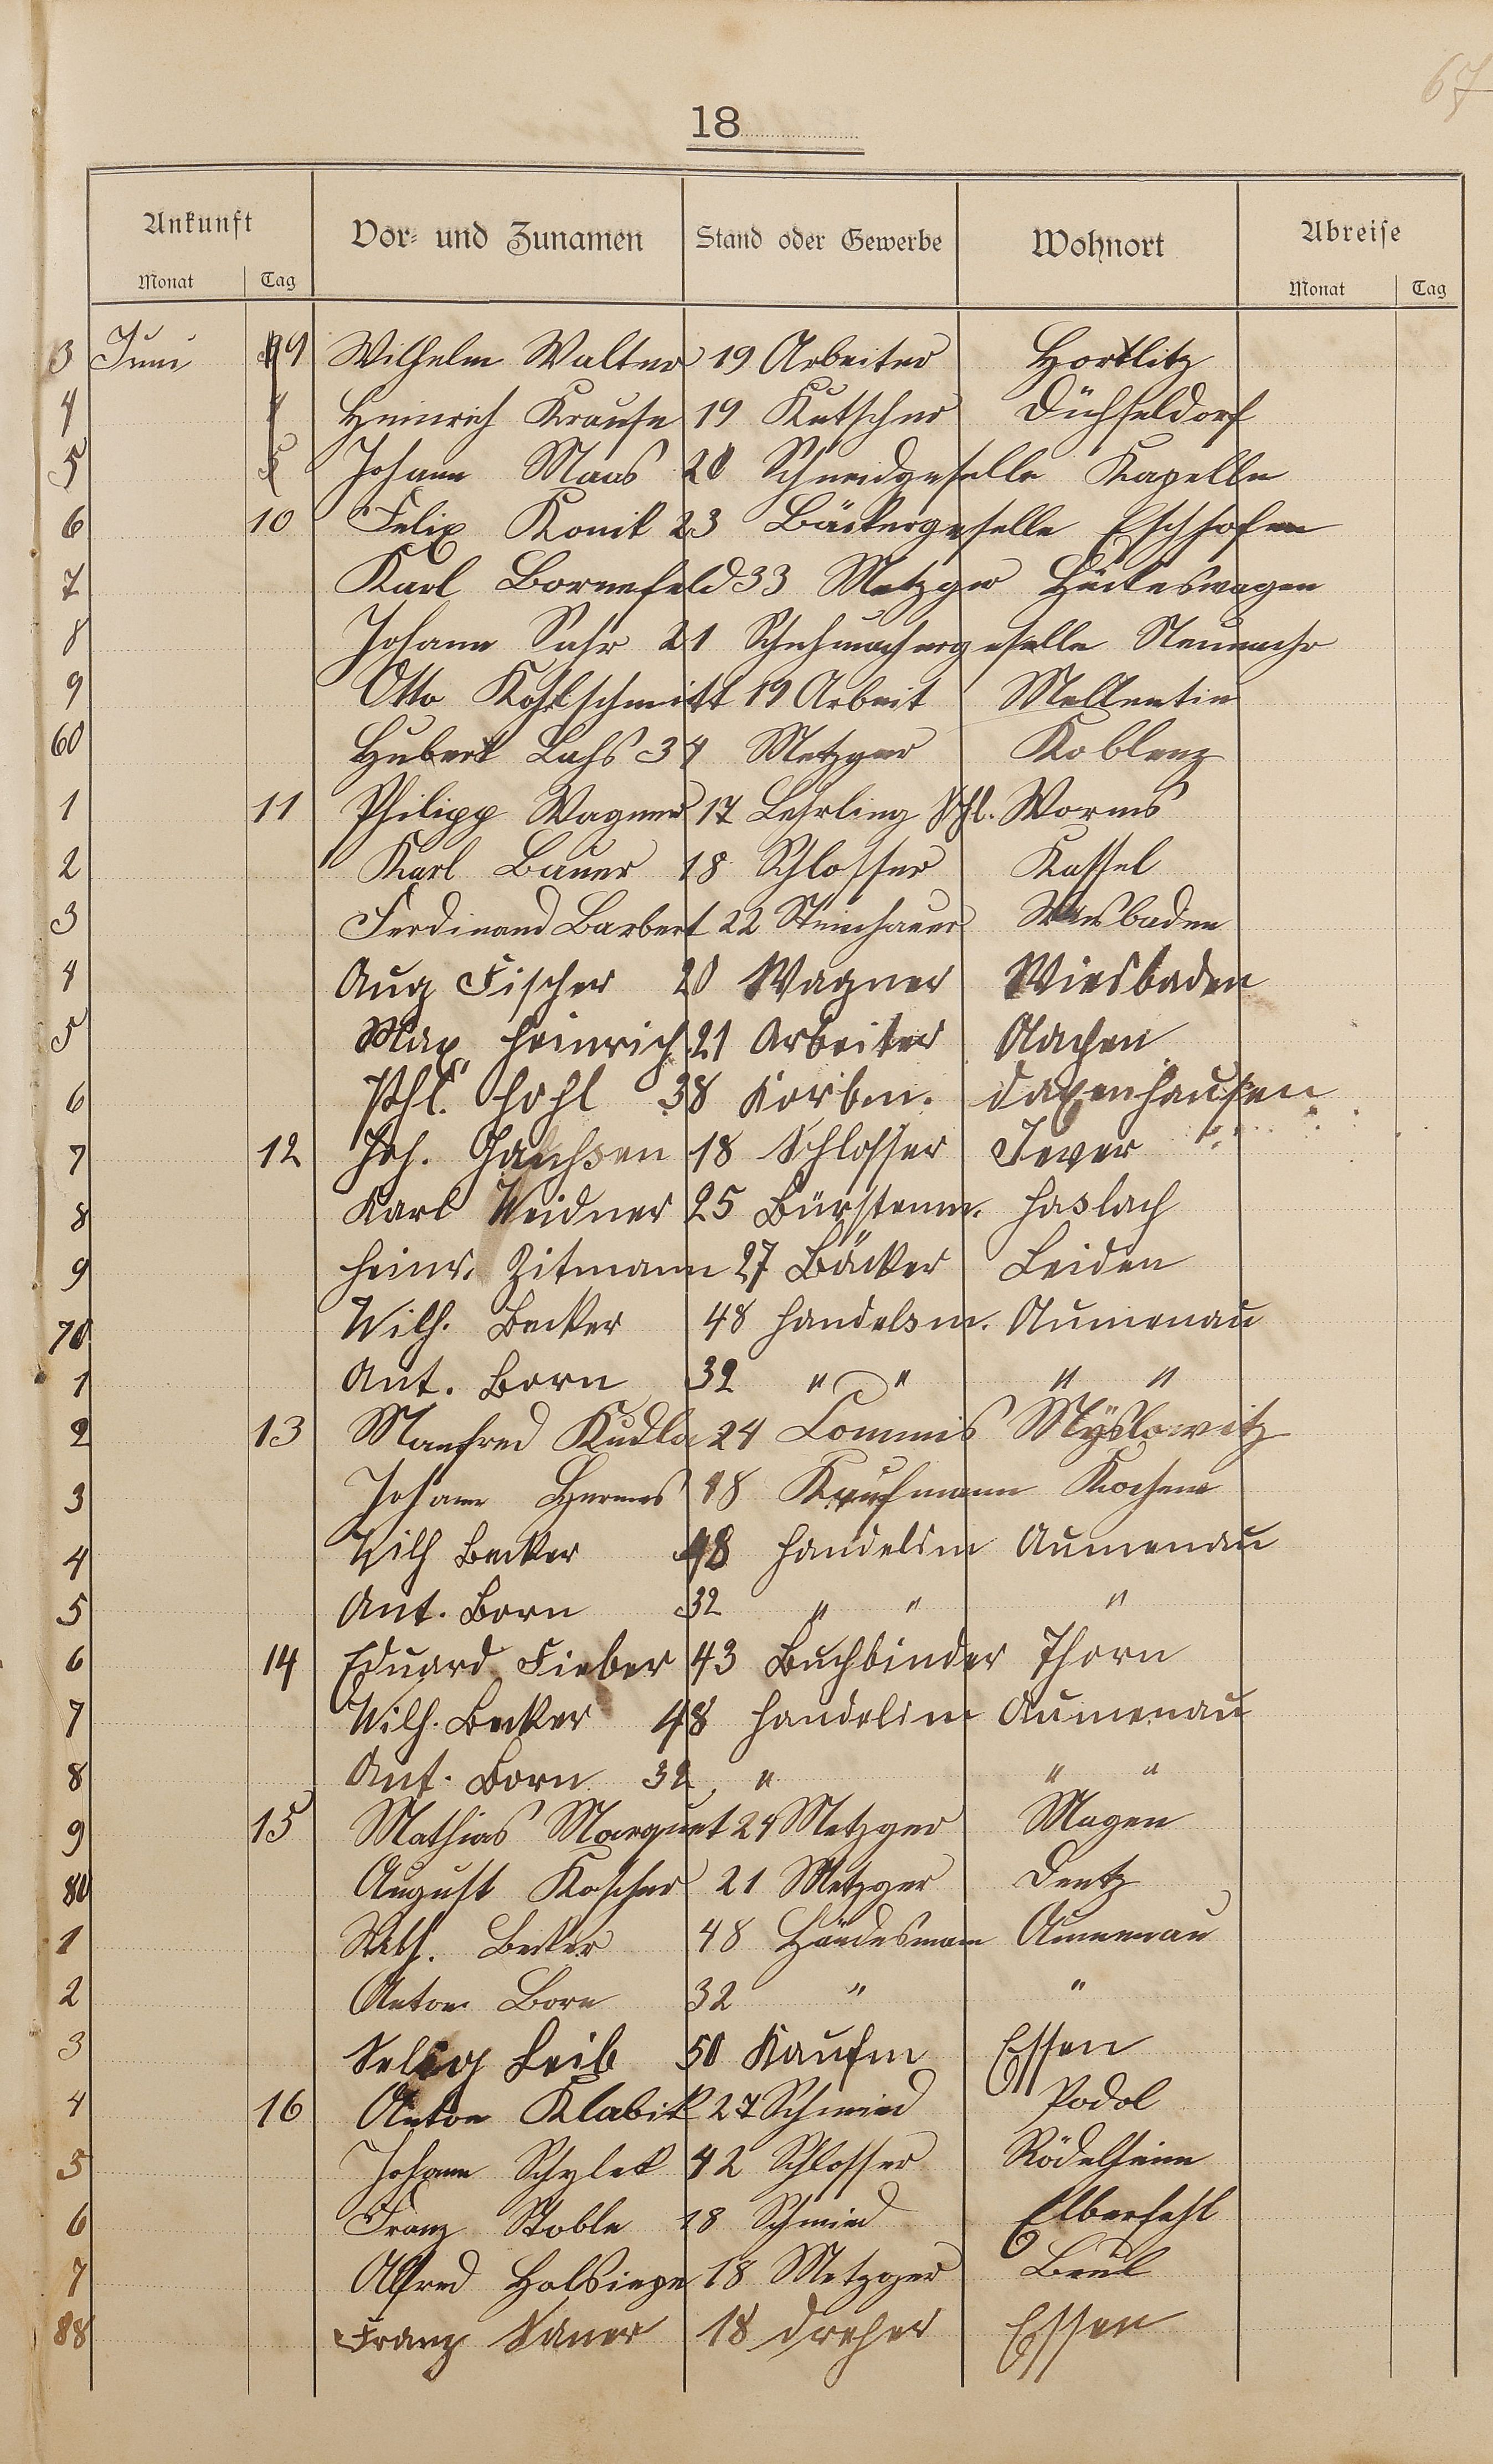 67
18
Ankunft Vor- und Zunamen Stand oder Gewerbe Wohnort Abreise
Monat Tag Monat Tag
3 Juni 9 Wilhelm Walter 19 Arbeiter Hortlitz
4 Heinrich Krause 19 Kutscher Düsseldorf
5 Johann Maas 20 Schneidgeselle Kapellen
6 10 Felix Konik 23 Bäckergeselle Eschhofen
7 Karl Bornefeld 33 Metzger Hückeswagen
8 Johann Sahr 21 Schuhmachergeselle
9 Otto Kohlschmitt 19 Arbeit Mellentin
60 Hubert Lahs 34 Metzger Koblenz
1 11 Philipp Wagner 17 Lehrling Schl. Worms
2 Karl Bauer 18 Schlosser Kassel
3 Ferdinand Barbert 22 Steinhauer Wiesbaden
4 Aug Fischer 20 Wagner Wiesbaden
5 Max Heinrich 21 Arbeiter Aachen
6 Phl. Hohl 38 Korbm. Daxenhausen
7 12 Joh. Janhsen 18 Schlosser Jever
8 Karl Weidner 25 Bürstenm. Haslach
9 Heinr. Zitmann 27 Bäcker Leiden
70 Wilh. Becker 48 Handelsm. Aumenau
1 Ant. Born 32 " " " "
2 13 Manfred Kudla 24 Commis Myslowitz
3 Johann Hermes 18 Kaufmann Kochem
4 Wilh Becker 48 Handelsm Aumenau
5 Ant. Born 32 " " "
6 14 Eduard Fieber 43 Buchbinder Thorn
7 Wilh. Becker 48 Handelsm Aumenau
8 Ant. Born 32 " " "
9 15 Mathias Marquet 24 Metzger Mayen
80 August Koscher 21 Metzger Deutz
1 Wilh. Becker 48 Händesmann Aumenau
2 Anton Born 32 " "
3 Selig Leib 50 Kaufm Essen
4 16 Anton Klabik 27 Schmied Podol
5 Johann Schylek 42 Schlosser Rödelheim
6 Franz Stoble 18 Schmied Elberfehl
7 Alfred Holsiepe 18 Metzger Beul
88 Franz Sauer 18 Dreher Essen